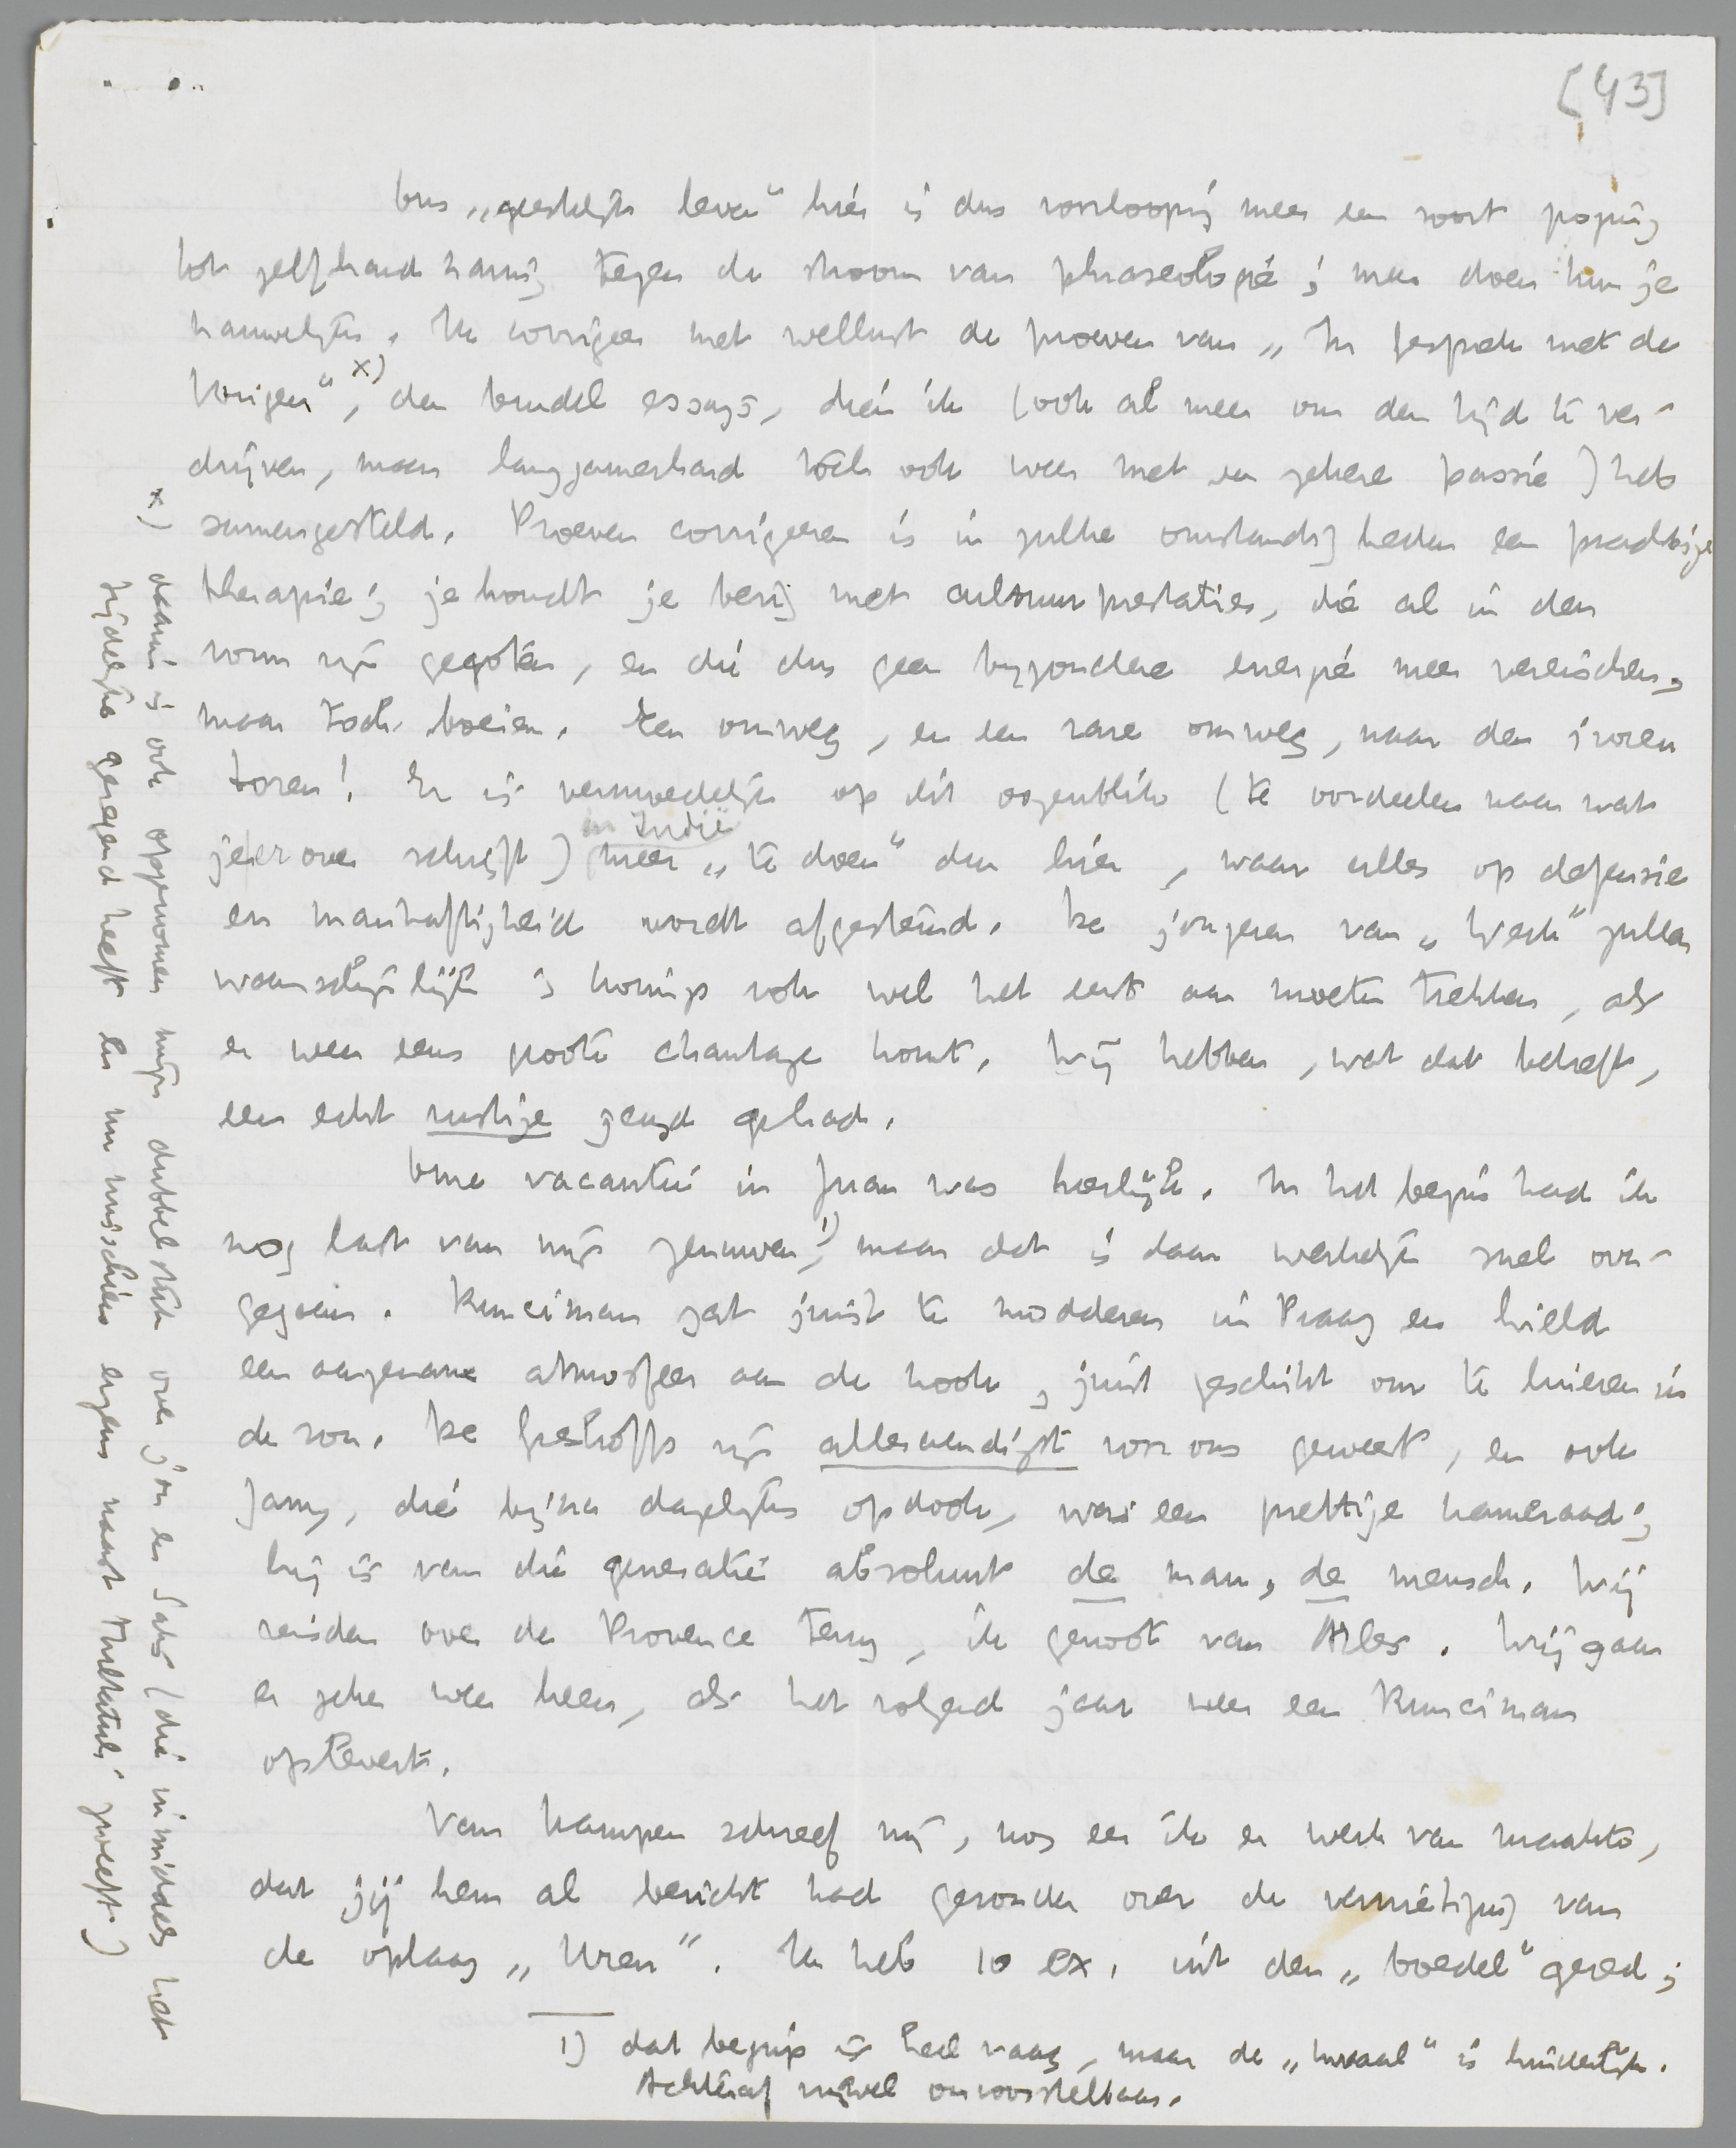 [43]
Ons „geestelijk leven" hier is dus voorloopig meer een soort poging
tot zelfhandhaving tegen de stroom van phraseologie; meer doen kun je
nauwelijks. Ik corrigeer met wellust de proeven van „In gesprek met de
Vorigen" x), den bundel essays, dien ik (ook al meer om den tijd te ver-
drijven, maar langzamerhand toch ook weer met een zekere passie) heb
samengesteld. Proeven corrigeeren is in zulke omstandigheden een prachtige
therapie; je houdt je bezig met cultuurprestaties, die al in den
vorm zijn gegoten, en die dus geen bijzondere energie meer vereischen,
maar toch boeien. Een omweg, en een rare omweg, naar den ivoren
toren! Er is vermoedelijk op dit oogenblik (te oordeelen naar wat
je er over schrijft) in Indië meer „te doen" dan hier, waar alles op defensie
en manhaftigheid wordt afgestemd. De jongeren van „Werk" zullen
waarschijnlijk 's konings rok wel het eerst aan moeten trekken, als
er weer eens groote chantage komt. Wij hebben, wat dat betreft,
een echt rustige jeugd gehad.
Onze vacantie in Juan was heerlijk. In het begin had ik
nog last van mijn zenuwen 1), maar dat is daar werkelijk snel over-
gegaan. Runciman zat juist te modderen in Praag en hield
een aangename atmosfeer aan de kook, juist geschikt om te luieren in
de zon. De Greshoffs zijn alleraardigst voor ons geweest, en ook
Jany, die bijna dagelijks opdook, was een prettige kameraad;
hij is van die generatie absoluut de man, de mensch. Wij
reisden over de Provence terug, ik genoot van Arles. Wij gaan
er zeker weer heen, als het volgend jaar weer een Runciman
oplevert.
Van Kampen schreef mij, nog eer ik er werk van maakte,
dat jij hem al bericht had gezonden over de vernietiging van
de oplaag „Uren". Ik heb 10 ex. uit den „boedel" gered;
1) dat begrip is heel vaag, maar de „kwaal" is hinderlijk.
Achteraf nijwel onvoorstelbaar.
x) daarin is ook opgenomen mijn dubbelstuk over jou en Saks (die inmiddels het
tijdelijke gezegend heeft en nu misschien ergens naast Multatuli zweeft.)